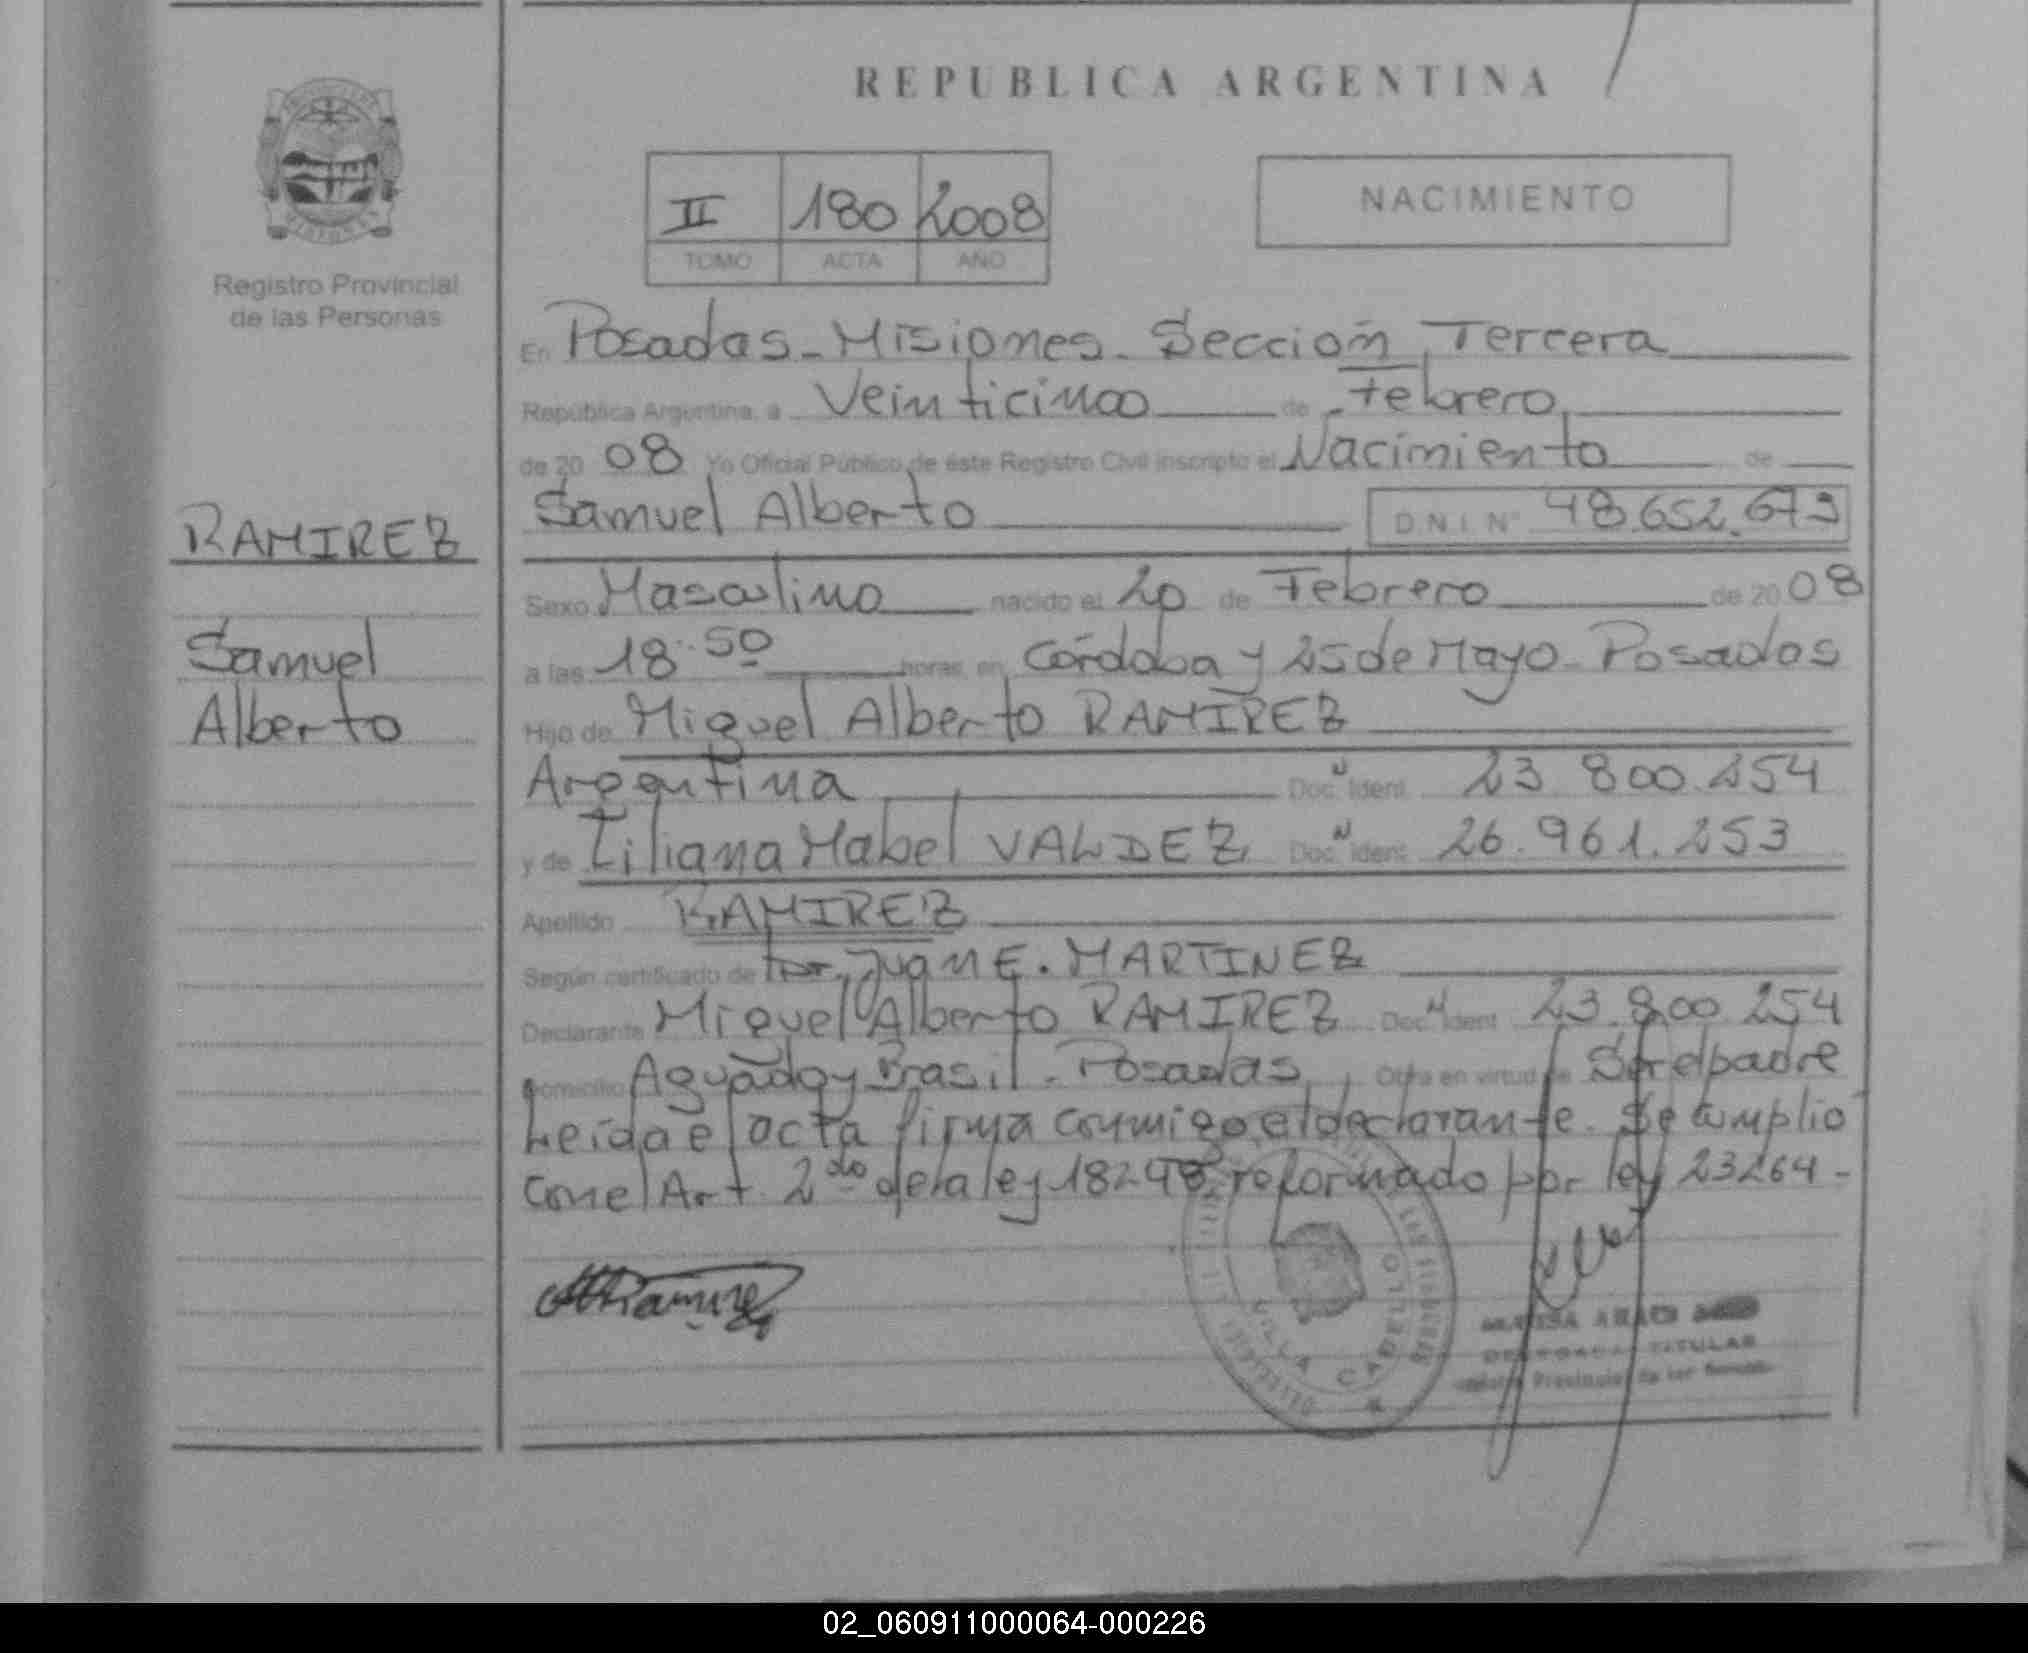 REPUBLICA ARGENTINA
Registro Provincial
de las Personas
II 180 2008
TOMO ACTA AÑO
NACIMIENTO
En Posadas - Misiones - Sección Tercera
República Argentina, a Veinticinco de Febrero
de 20 08 Yo Oficial Público de éste Registro Civil inscripto el Nacimiento de
Samuel Alberto D.N.I. N° 48.652.673
RAMIREZ
Samuel
Alberto
Sexo Masculino nacido el 20 de Febrero de 20 08
a las 18.50 horas, en Córdoba y 25 de Mayo - Posadas
Hijo de Miguel Alberto RAMIREZ
Argentina Doc. N Ident. 23.800.254
y de Liliana Mabel VALDEZ Doc. N Ident. 26.961.253
Apellido RAMIREZ
Según certificado de Dr. Juan E. MARTINEZ
Declarante Miguel Alberto RAMIREZ Doc. N Ident. 23.800.254
Domicilio Aguado y Brasil - Posadas Obra en virtud de Ser el padre
Leída el acta firma conmigo el declarante. Se cumplio
con el Art. 2do de la ley 18248 reformado por ley 23264 -
Ramirez
VILLA CABELLO
TITULAR
Provincial de las
02_060911000064-000226